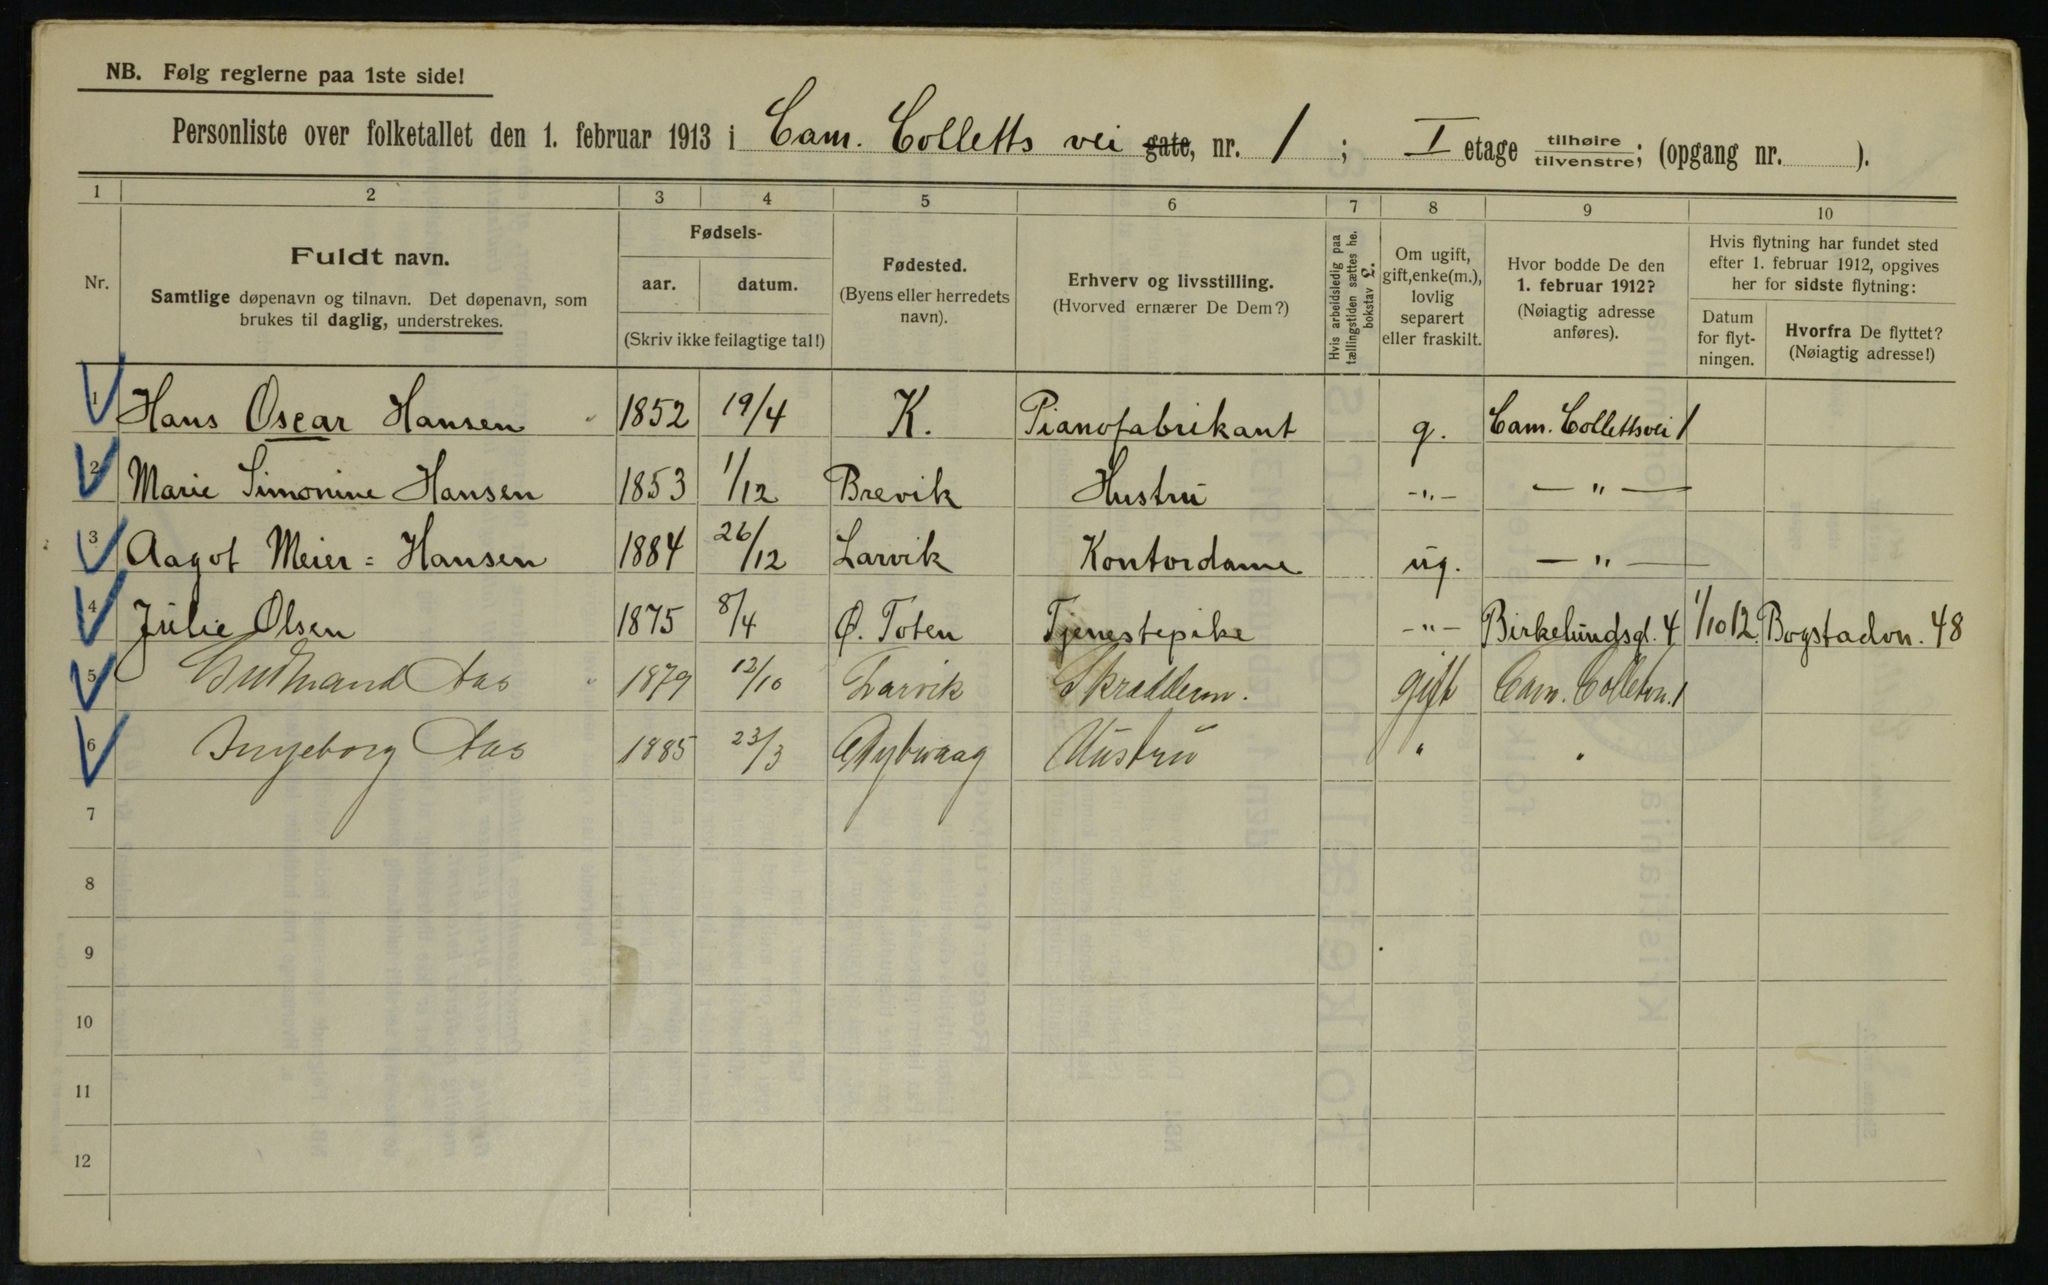 NB. Følg reglerne paa 1ste side!
Personliste over folketallet den 1. februar 1913 i Cam. Colletts vei gate, nr. 1 ; I etage tilhøire tilvenstre; (opgang nr. ).
1 2 3 4 5 6 7 8 9 10
Nr.
Fuldt navn.
Samtlige døpenavn og tilnavn. Det døpenavn, som
brukes til daglig, understrekes.
Fødsels-
aar. datum.
(Skriv ikke feilagtige tal!)
Fødested.
(Byens eller herredets
navn).
Erhverv og livsstilling.
(Hvorved ernærer De Dem?)
Hvis arbeidsledig paa
tællingstiden sættes he.
bokstav £.
Om ugift,
gift, enke(m.),
lovlig
separert
eller fraskilt.
Hvor bodde De den
1. februar 1912?
(Nøiagtig adresse
anføres).
Hvis flytning har fundet sted
efter 1. februar 1912, opgives
her for sidste flytning:
Datum
for flyt-
ningen.
Hvorfra De flyttet?
(Nøiagtig adresse!)
1 Hans Oscar Hansen 1852 19/4 K. Pianofabrikant g. Cam. Collettsvei 1
2 Marie Simonine Hansen 1853 1/12 Brevik Hustru -"- -"-
3 Aagot Meier = Hansen 1884 26/12 Larvik Kontordame ug. -"-
4 Julie Olsen 1875 8/4 Ø. Toten Tjenestepike -"- Birkelundsgt. 4 1/10 12. Bogstadvn. 48
5 Gudmand Aas 1879 12/10 Larvik Skrædderm. gift Cam. Colletvn. 1
6 Ingeborg Aas 1885 23/3 Dybvaag Hustru " "
7
8
9
10
11
12